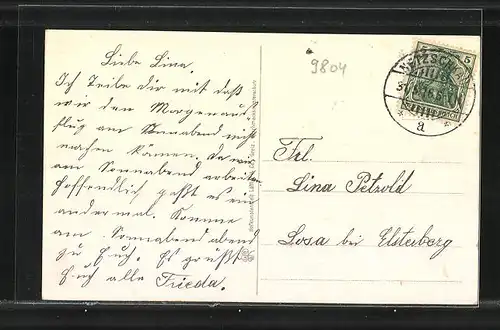 Liebe Lina.
Ich Teile dir mit daß
wir den Morgenaus
flug am Sonnabend nicht
machen können. Da wir
am Sonnabend arbeiten
hoffendlich geht es ein
andermal. Komme
am Sonnabend abend
zu Euch. Es grüßt
Euch alle Frieda.
9804
Frl.
Lina Petzold
Losa bei Elsterberg
NETZSCHKAU
5
a